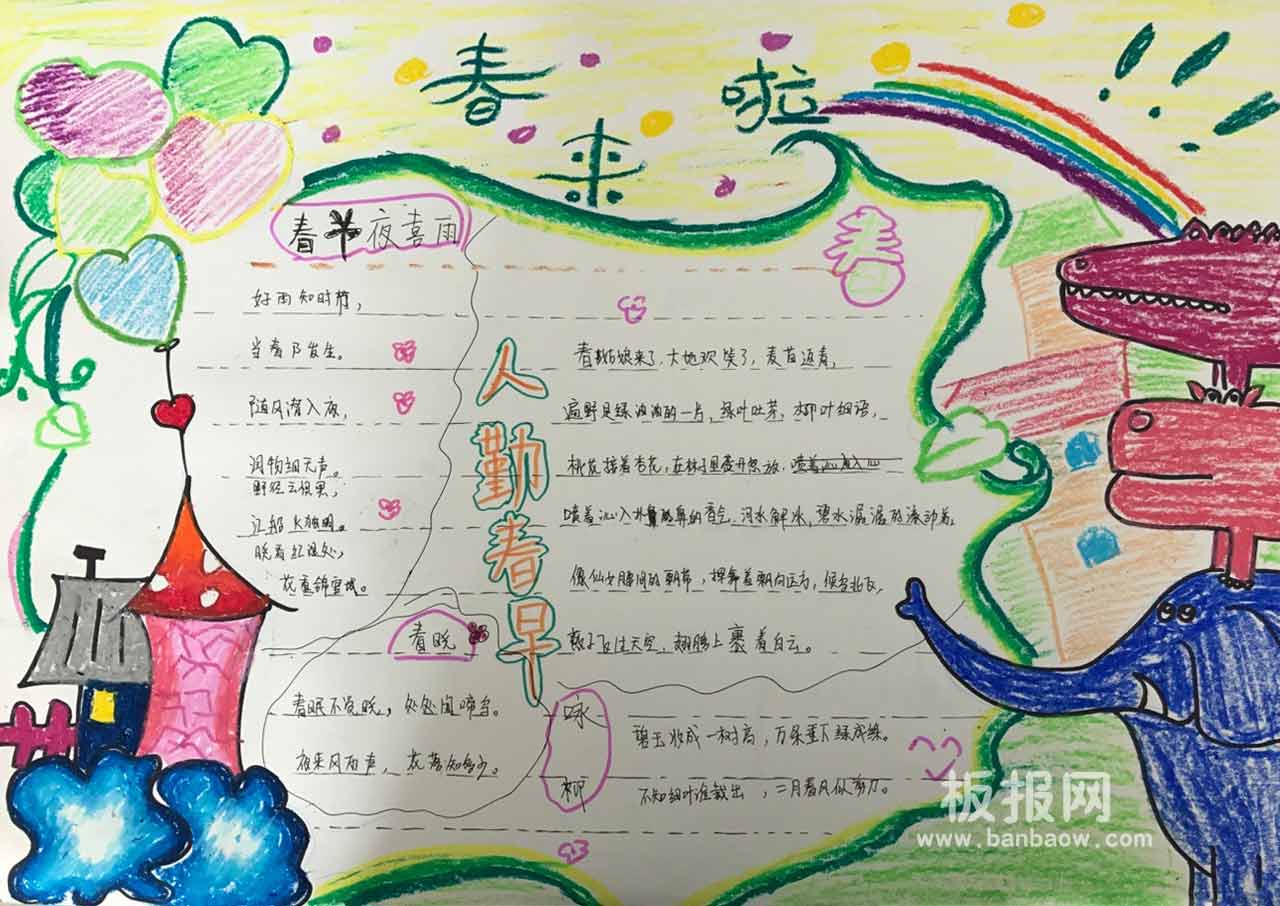 春来啦
春夜喜雨
好雨知时节，
当春乃发生。
随风潜入夜，
润物细无声。
野径云俱黑，
江船火独明。
晓看红湿处，
花重锦官城。
春晓
春眠不觉晓，处处闻啼鸟。
夜来风雨声，花落知多少。
人勤春早
春
春姑娘来了，大地欢笑了，麦苗返青，
遍野是绿油油的一片，绿叶吐芽，柳叶细语，
桃花接着杏花，在林子里盛开怒放，
喷着沁入鼻的香气，河水解冰，碧水潺潺的流动着，
像仙女腰间的绸带，挥舞着飘向远方，候鸟北飞，
燕子飞过天空，翅膀上裹着白云。
咏柳
碧玉妆成一树高，万条垂下绿丝绦。
不知细叶谁裁出，二月春风似剪刀。
板报网
www.banbaow.com